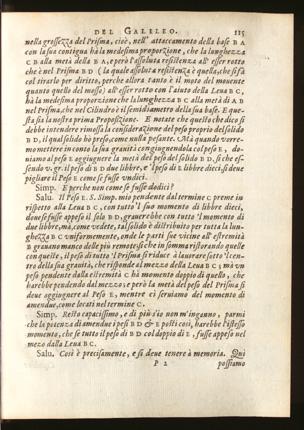 DEL GALILEO. 115
nella grossezza del Prisma, cioè, nell' attaccamento della base BA
con la sua contigua hà la medesima proporzione, che la lunghezza
CB alla metà della BA, però l'assoluta resistenza all' esser rotto
che è nel Prisma BD (la quale assoluta resistenza è quella, che si fà
col tirarlo per diritto, perche allora tanto è il moto del mouente
quanto quello del mosso) all' esser rotto con l'aiuto della Leua BC,
hà la medesima proporzione che la lunghezza BC alla metà di AB
nel Prisma, che nel Cilindro è il semidiametro della sua base. E que-
sta sia la nostra prima Proposizione. E notate che questo che dico si
debbe intendere rimossa la considerazione del peso proprio del solido
BD, il qual solido hò preso, come nulla pesante. Mà quando vorre-
mo mettere in conto la sua grauità congiugnendola col peso E, do-
uiamo al peso E aggiugnere la metà del peso del solido BD, sì che es-
sendo v. gr. il peso di BD due libbre, e 'l peso di E libbre dieci, si deue
pigliare il Peso E come se fusse vndici.
Simp. E perche non come se fusse dodici?
Salu. Il Peso E. S. Simp. mio pendente dal termine C preme in
rispetto alla Leua BC, con tutto 'l suo momento di libbre dieci,
doue se fusse appeso il solo BD, grauerebbe con tutto 'l momento di
due libbre, mà, come vedete, tal solido è distribuito per tutta la lun-
ghezza BC vniformemente, onde le parti sue vicine all' estremità
B grauano manco delle più remote, sì che in somma ristorando quelle
con queste, il peso di tutto 'l Prisma si riduce à lauorare sotto 'l cen-
tro della sua grauità, che risponde al mezzo della Leua BC; mà vn
peso pendente dalla estremità C hà momento doppio di quello, che
harebbe pendendo dal mezzo: e però la metà del peso del Prisma si
deue aggiugnere al Peso E, mentre ci seruiamo del momento di
amendue, come locati nel termine C.
Simp. Resto capacissimo, e di più s'io non m'inganno, parmi
che la potenza di amendue i pesi BD & E posti così, harebbe l'istesso
momento, che se tutto il peso di BD col doppio di E, fusse appeso nel
mezo dalla Leua BC.
Salu. Così è precisamente, e si deue tenere à memoria. Quì
P 2 possiamo